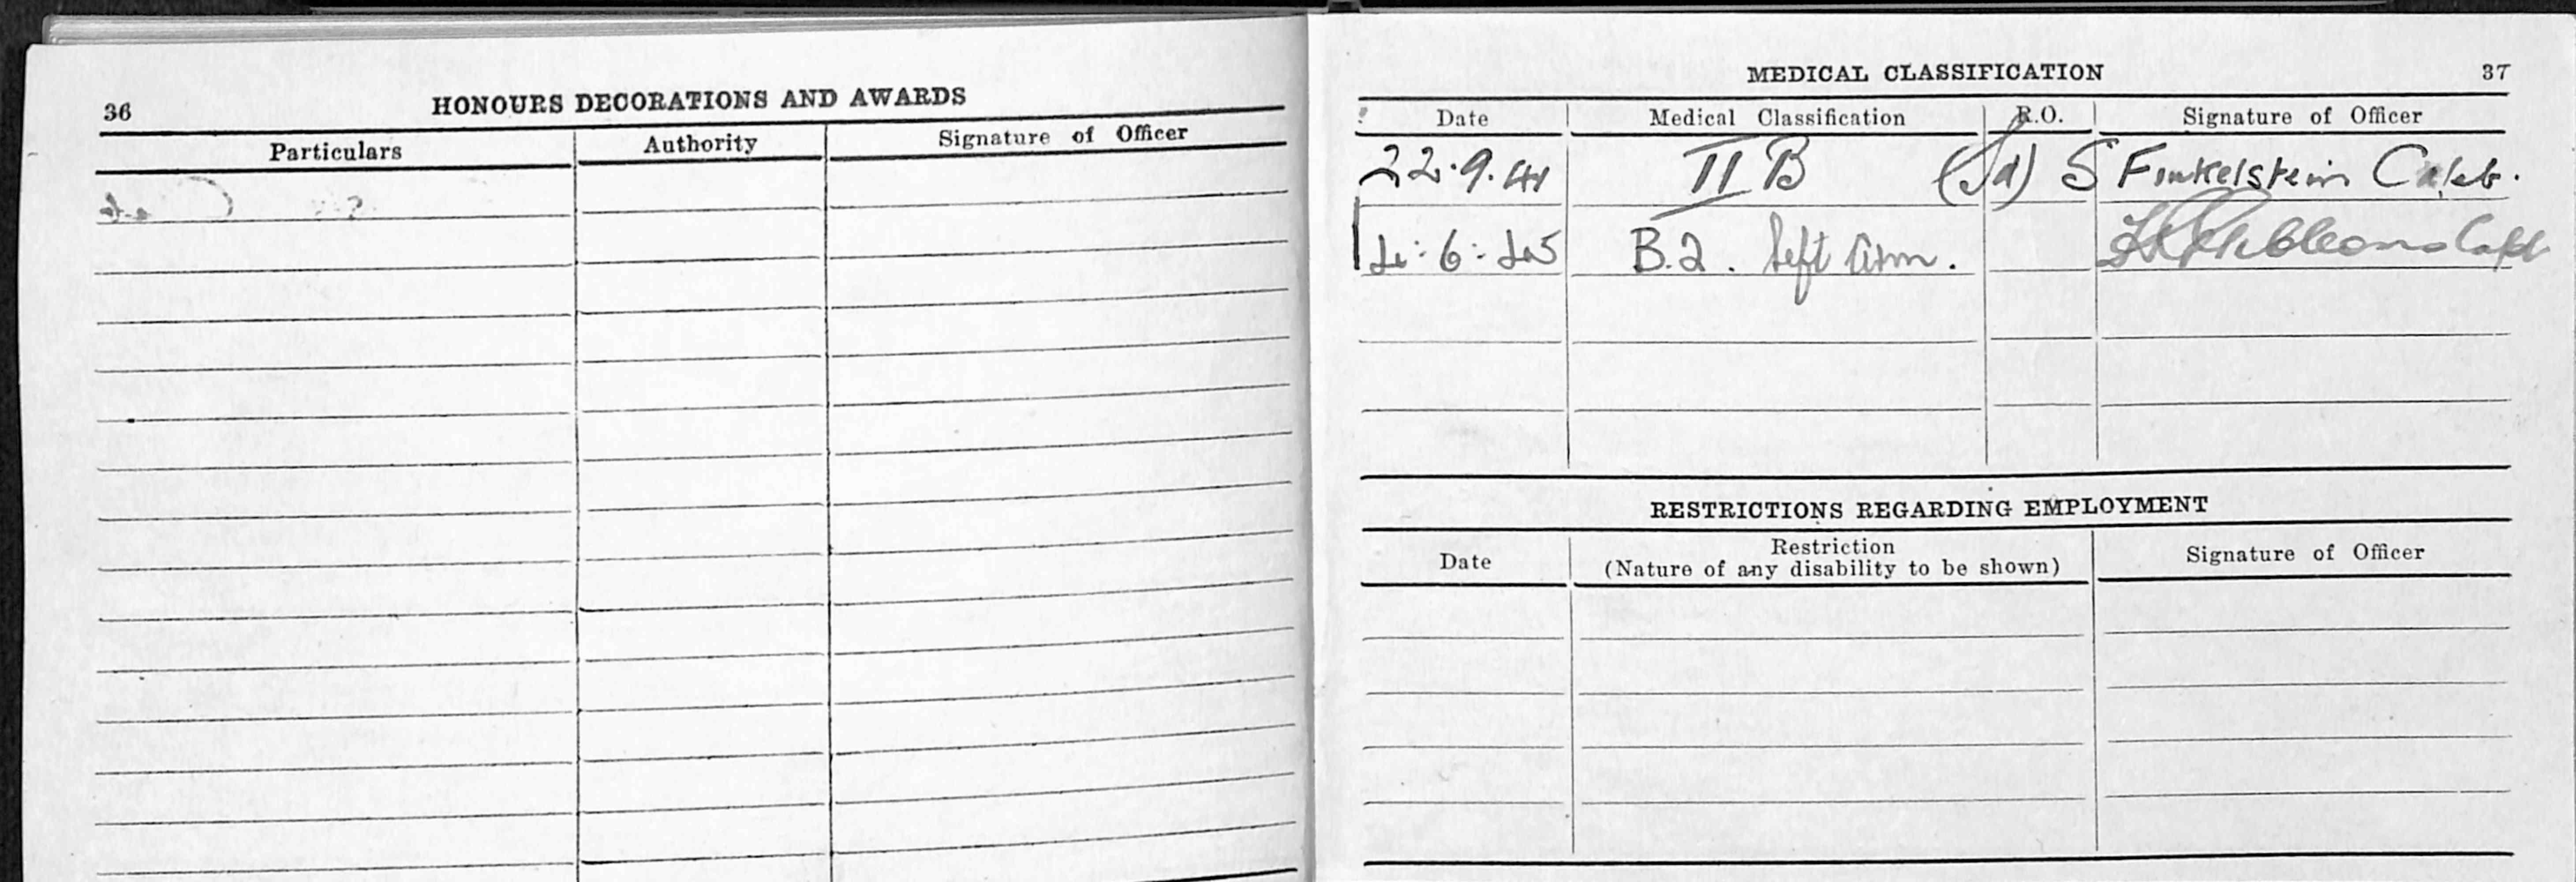 36
HONOURS DECORATIONS AND AWARDS
Particulars Authority Signature of Officer
MEDICAL CLASSIFICATION 37
Date Medical Classification R.O. Signature of Officer
22.9.41 II B (Sd) S Finkelstein
14:6:45 B.2. Left Arm. Capt
RESTRICTIONS REGARDING EMPLOYMENT
Date Restriction Signature of Officer
(Nature of any disability to be shown)